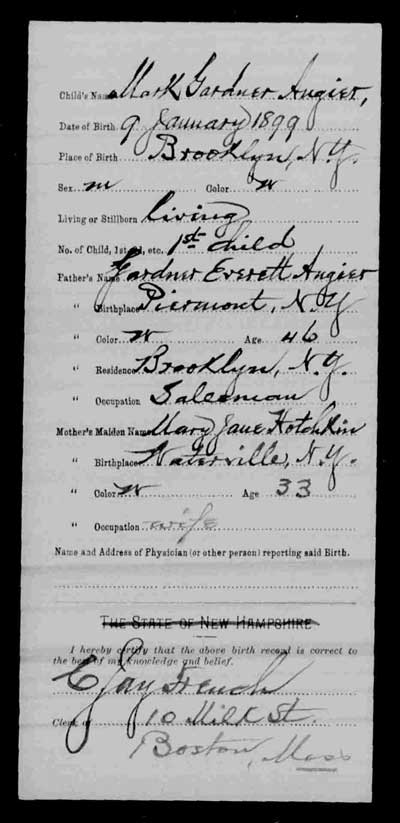 Child's Name Mark Gardner Angier,
Date of Birth 9 January 1899
Place of Birth Brooklyn, N.Y.
Sex m Color W
Living or Stillborn living
No. of Child, 1st, 2d, etc. 1st child
Father's Name Gardner Everett Angier
" Birthplace Piermont, N.Y
" Color W Age 46
" Residence Brooklyn, N.Y.
" Occupation Salesman
Mother's Maiden Name Mary Jane Hotchkin
" Birthplace Waterville, N.Y.
" Color W Age 33
" Occupation wife
Name and Address of Physician (or other person) reporting said Birth.
THE STATE OF NEW HAMPSHIRE
I hereby certify that the above birth record is correct to
the best of my knowledge and belief.
E Jay French
Clerk of 10 Milk St.
Boston, Mass